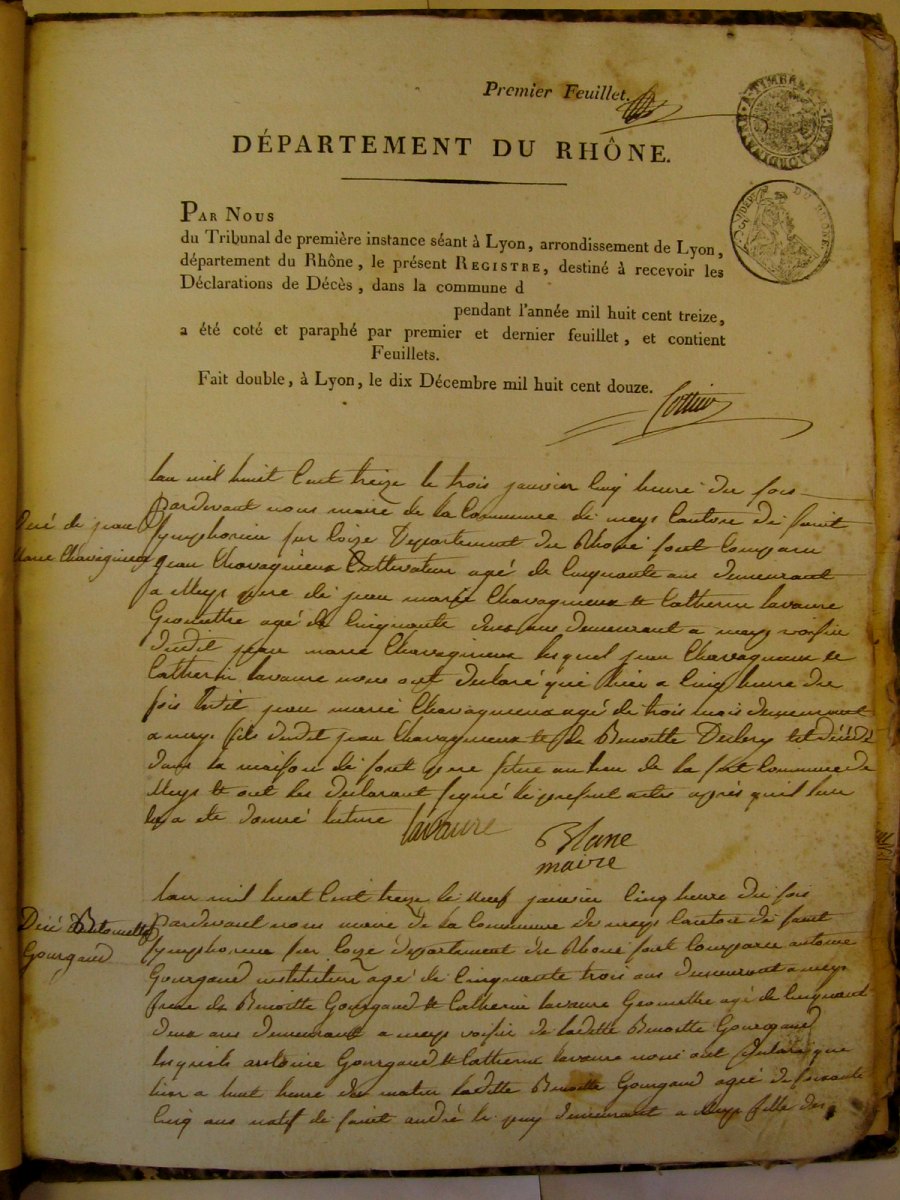 Premier Feuillet.
A TIMBRE EXTRAORDINAIRE
DÉPARTEMENT DU RHÔNE.
DU RHÔNE
PAR NOUS
du Tribunal de première instance séant à Lyon, arrondissement de Lyon,
département du Rhône, le présent REGISTRE, destiné à recevoir les
Déclarations de Décès, dans la commune d
pendant l'année mil huit cent treize,
a été coté et paraphé par premier et dernier feuillet, et contient
Feuillets.
Fait double, à Lyon, le dix Décembre mil huit cent douze.
lan mil huit Cent treize le trois janvier Cinq heure du sois
pardevant nous maire de la Commune de meys Cantone de saint
symphorien sur Coize Departement du Rhone sont Comparu
jean Chavagnieux Cultivateur agé de Cinquante ans demeurant
a Meys pere de jean marie Chavagnieux & Catherin lavaure
Geomettre agé de Cinquante deux ans demeurant a meys voisin
dudit jean marie Chavagnieux lesquel jean Chavagnieux &
Catherin lavaure nous ont declaré que hier a Cinq heure du
sois ledit jean marie Chavagnieux agé de trois mois demeurant
a meys fils dudit jean Chavagnieux & de Benoitte est décédé
dans la maison de sont pere situe au lieu de la Commune de
Meys & ont les declarant signé le present actes apres quil leur
en a eté donné lecture lavaure
Blanc
maire
Decé de jean
marie Chavagnieux
lan mil huit Cent treize le neuf janvier Cinq heure du sois
pardevant nous maire de la Commune de meys Canton de saint
symphorien sur Coize departement du Rhone sont Comparu antoine
Gourgaud instituteur agé de Cinquante trois ans demeurant a meys
frere de Benoitte Gourgaud & Catherin lavaure Geomettre agé de Cinquante
deux ans demeurant a meys voisin de ladette Benoitte Gourgaud
lesquels antoine Gourgaud & Catherin lavaure nous ont declaré que
hier a huit heure du matin ladette Benoitte Gourgaud agée de soixante
Cinq ans natif de saint andré le puy demeurant a Meys fille des
Decé
Gourgaud